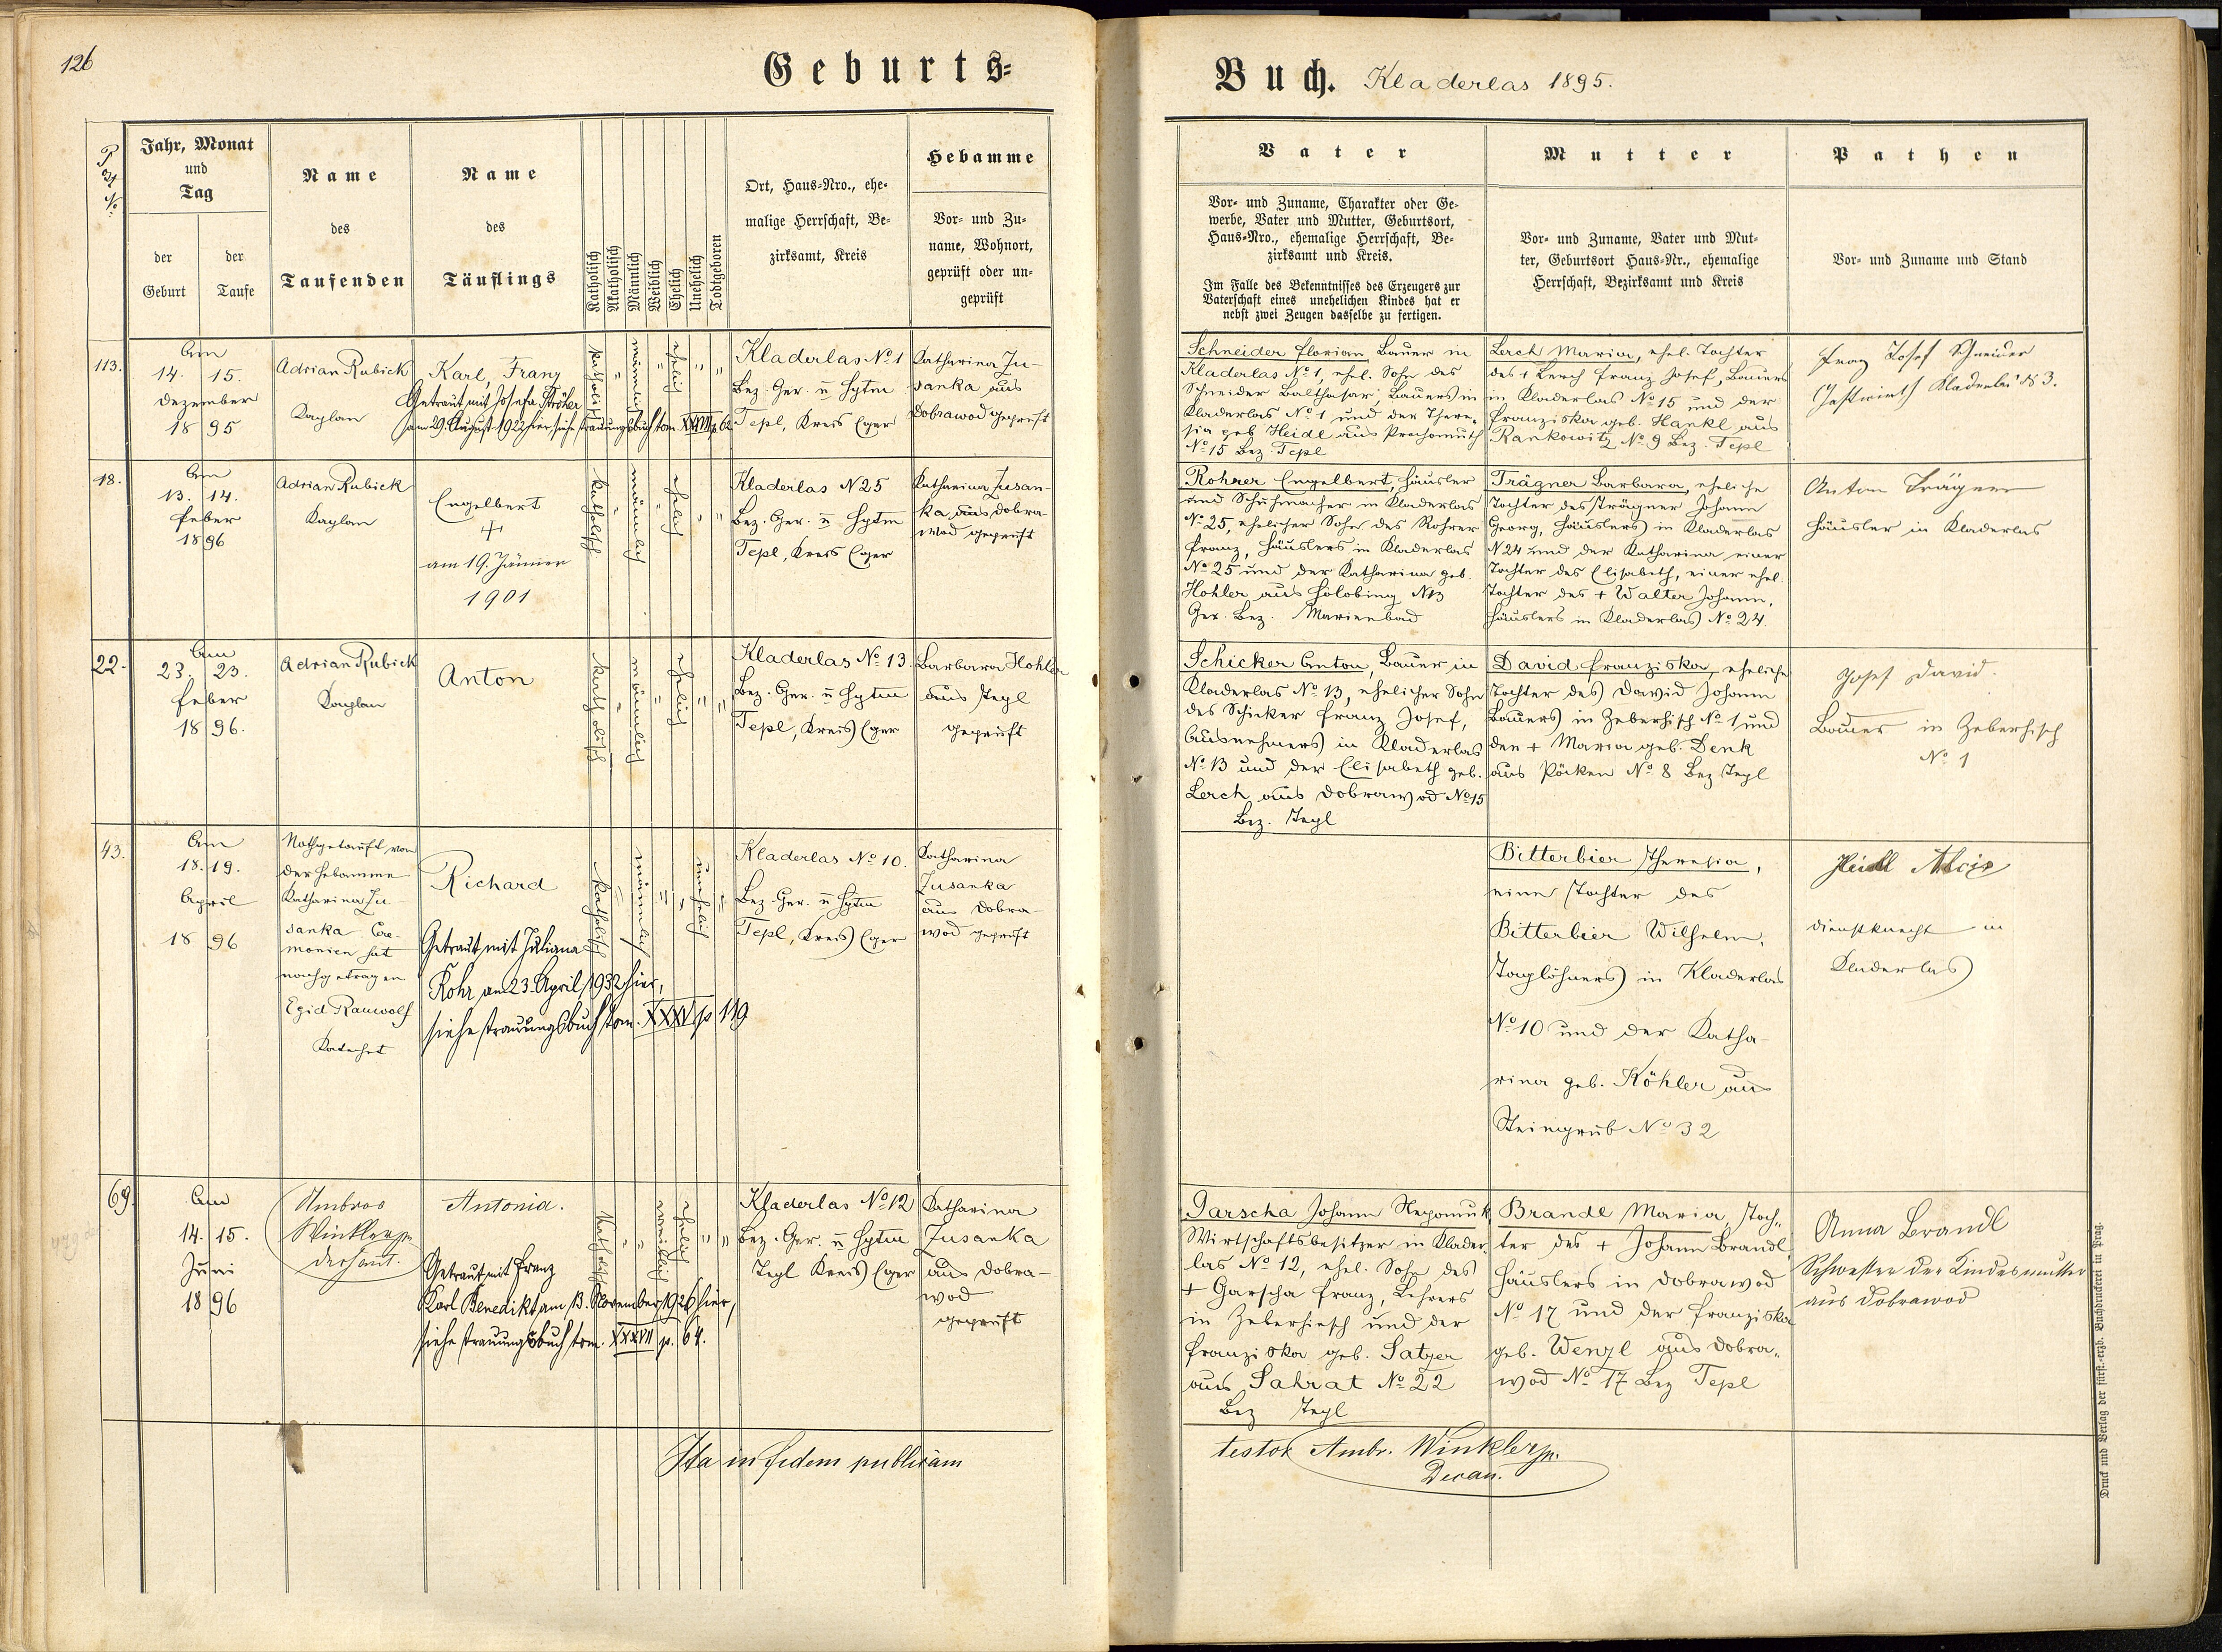 126
Geburts=
Buch. Kladerlas 1895.
Jahr, Monat
und
Tag
der Geburt
der Taufe
Name
des
Taufenden
Name
des
Täuflings
Katholisch
Akatholisch
Männlich
Weiblich
Ehelich
Unehelich
Todtgeboren
Ort, Haus=Nro., ehe=
malige Herrschaft, Be=
zirksamt, Kreis
Hebamme
Vor= und Zu=
name, Wohnort,
geprüft oder un=
geprüft
Vater
Vor= und Zuname, Charakter oder Ge=
werbe, Vater und Mutter, Geburtsort,
Haus=Nro., ehemalige Herrschaft, Be=
zirksamt und Kreis.
Im Falle des Bekenntnisses des Erzeugers zur
Vaterschaft eines unehelichen Kindes hat er
nebst zwei Zeugen dasselbe zu fertigen.
Mutter
Vor= und Zuname, Vater und Mut=
ter, Geburtsort Haus=Nr., ehemalige
Herrschaft, Bezirksamt und Kreis
Pathen
Vor= und Zuname und Stand
113.
Am
14. 15.
Dezember
18 95
Adrian Rubick
Kaplan
Karl, Franz
Getraut mit Josefa Ströher
am 29. August 1922 hier, siehe Trauungsbuch tom. XXXVII p 62
katholisch
"
männlich
"
ehelich
"
"
Kladerlas No 1
Bez. Ger. u Hptm
Tepl, Kreis Eger
Katharina Zu-
sanka aus
Dobrawod geprüft
Schneider Florian Bauer in
Kladerlas No 1, ehel. Sohn des
Schneider Balthasar, Bauers in
Kladerlas No 1 und der There-
sia geb Heidl aus Prochomuth
No 15 Bez. Tepl
Lerch Maria, ehel. Tochter
des + Lerch Franz Josef, Bauers
in Kladerlas No 15 und der
Franziska geb. Hankl aus
Rankowitz No 9 Bez. Tepl
Franz Josef Schneider
Gastwirth Kladerlas No 3.
18.
Am
13. 14.
Feber
18 96
Adrian Rubick
Kaplan
Engelbert
+
am 19. Jänner
1901
katholisch
"
männlich
"
ehelich
"
"
Kladerlas N 25
Bez. Ger. u Hptm
Tepl, Kreis Eger
Katharina Zusan-
ka aus Dobra
wod geprüft
Rohrer Engelbert, Häusler
und Schuhmacher in Kladerlas
No 25, ehelicher Sohn des Rohrer
Franz, Häuslers in Kladerlas
No 25 und der Katharina geb.
Hohler aus Holobing N 13
Ger. Bez. Marienbad
Trägner Barbara, eheliche
Tochter des Trägner Johann
Georg, Häuslers in Kladerlas
N 24 und der Katharina einer
Tochter des Elisabeth, einer ehel.
Tochter des + Walter Johann,
Häuslers in Kladerlas No 24.
Anton Trägner
Häusler in Kladerlas
22.
Am
23. 23.
Feber
18 96.
Adrian Rubick
Kaplan
Anton
katholisch
"
männlich
"
ehelich
"
"
Kladerlas No 13.
Bez. Ger. u Hptm
Tepl, Kreis Eger
Barbara Hohler
aus Tepl
geprüft
Schicker Anton, Bauer in
Kladerlas No 13, ehelicher Sohn
des Schicker Franz Josef,
Ausnehmers in Kladerlas
No 13 und der Elisabeth geb.
Lerch aus Dobrawod No 15
Bez. Tepl
David Franziska, eheliche
Tochter des David Johann
Bauers in Zeberhisch No 1 und
der + Maria geb. Denk
aus Pöcken No 8 Bez Tepl
Josef David.
Bauer in Zeberhisch
No 1
43.
Am
18. 19.
April
18 96
Nothgetauft von
der Hebamme
Katharina Zu-
sanka Cere-
monien hat
nachgetragen
Egid Rauwolf
Katechet
Richard
Getraut mit Juliana
Rohr am 23. April 1932 hier,
siehe Trauungsbuch tom. XXXV p 119
katholisch
"
männlich
"
"
unehelich
"
Kladerlas No 10.
Bez. Ger. u Hptm
Tepl, Kreis Eger
Katharina
Zusanka
aus Dobra-
wod geprüft
Bitterbier Theresia,
eine Tochter des
Bitterbier Wilhelm,
Taglöhners in Kladerlas
No 10 und der Katha-
rina geb. Köhler aus
Steingrub No 32
Heidl Alois
Dienstknecht in
Kladerlas
69.
Am
14. 15.
Juni
18 96
Ambros
Winkler
Dechant.
Antonia.
Getraut mit Franz
Karl Benedikt am 13. November 1926 hier,
siehe Trauungsbuch tom. XXXVII p. 64.
katholisch
"
"
weiblich
ehelich
"
"
Kladerlas No 12
Bez. Ger. u Hptm
Tepl Kreis Eger
Katharina
Zusanka
aus Dobra-
wod
geprüft
Garscha Johann Nepomuk
Wirtschaftsbesitzer in Klader-
las No 12, ehel. Sohn des
+ Garscha Franz, Lehrers
in Zeberhisch und der
Franziska geb. Satzer
aus Sahrat No 22
Bez Tepl
Brandl Maria, Toch-
ter des + Johann Brandl,
Häuslers in Dobrawod
No 17 und der Franziska
geb. Wenzl aus Dobra-
wod No 17 Bez Tepl
Anna Brandl
Schwester der Kindesmutter
aus Dobrawod
Ita in fidem publicam
testor Ambr. Winkler
Decan.
Druck und Verlag der fürst.-erzb. Buchdruckerei in Prag.